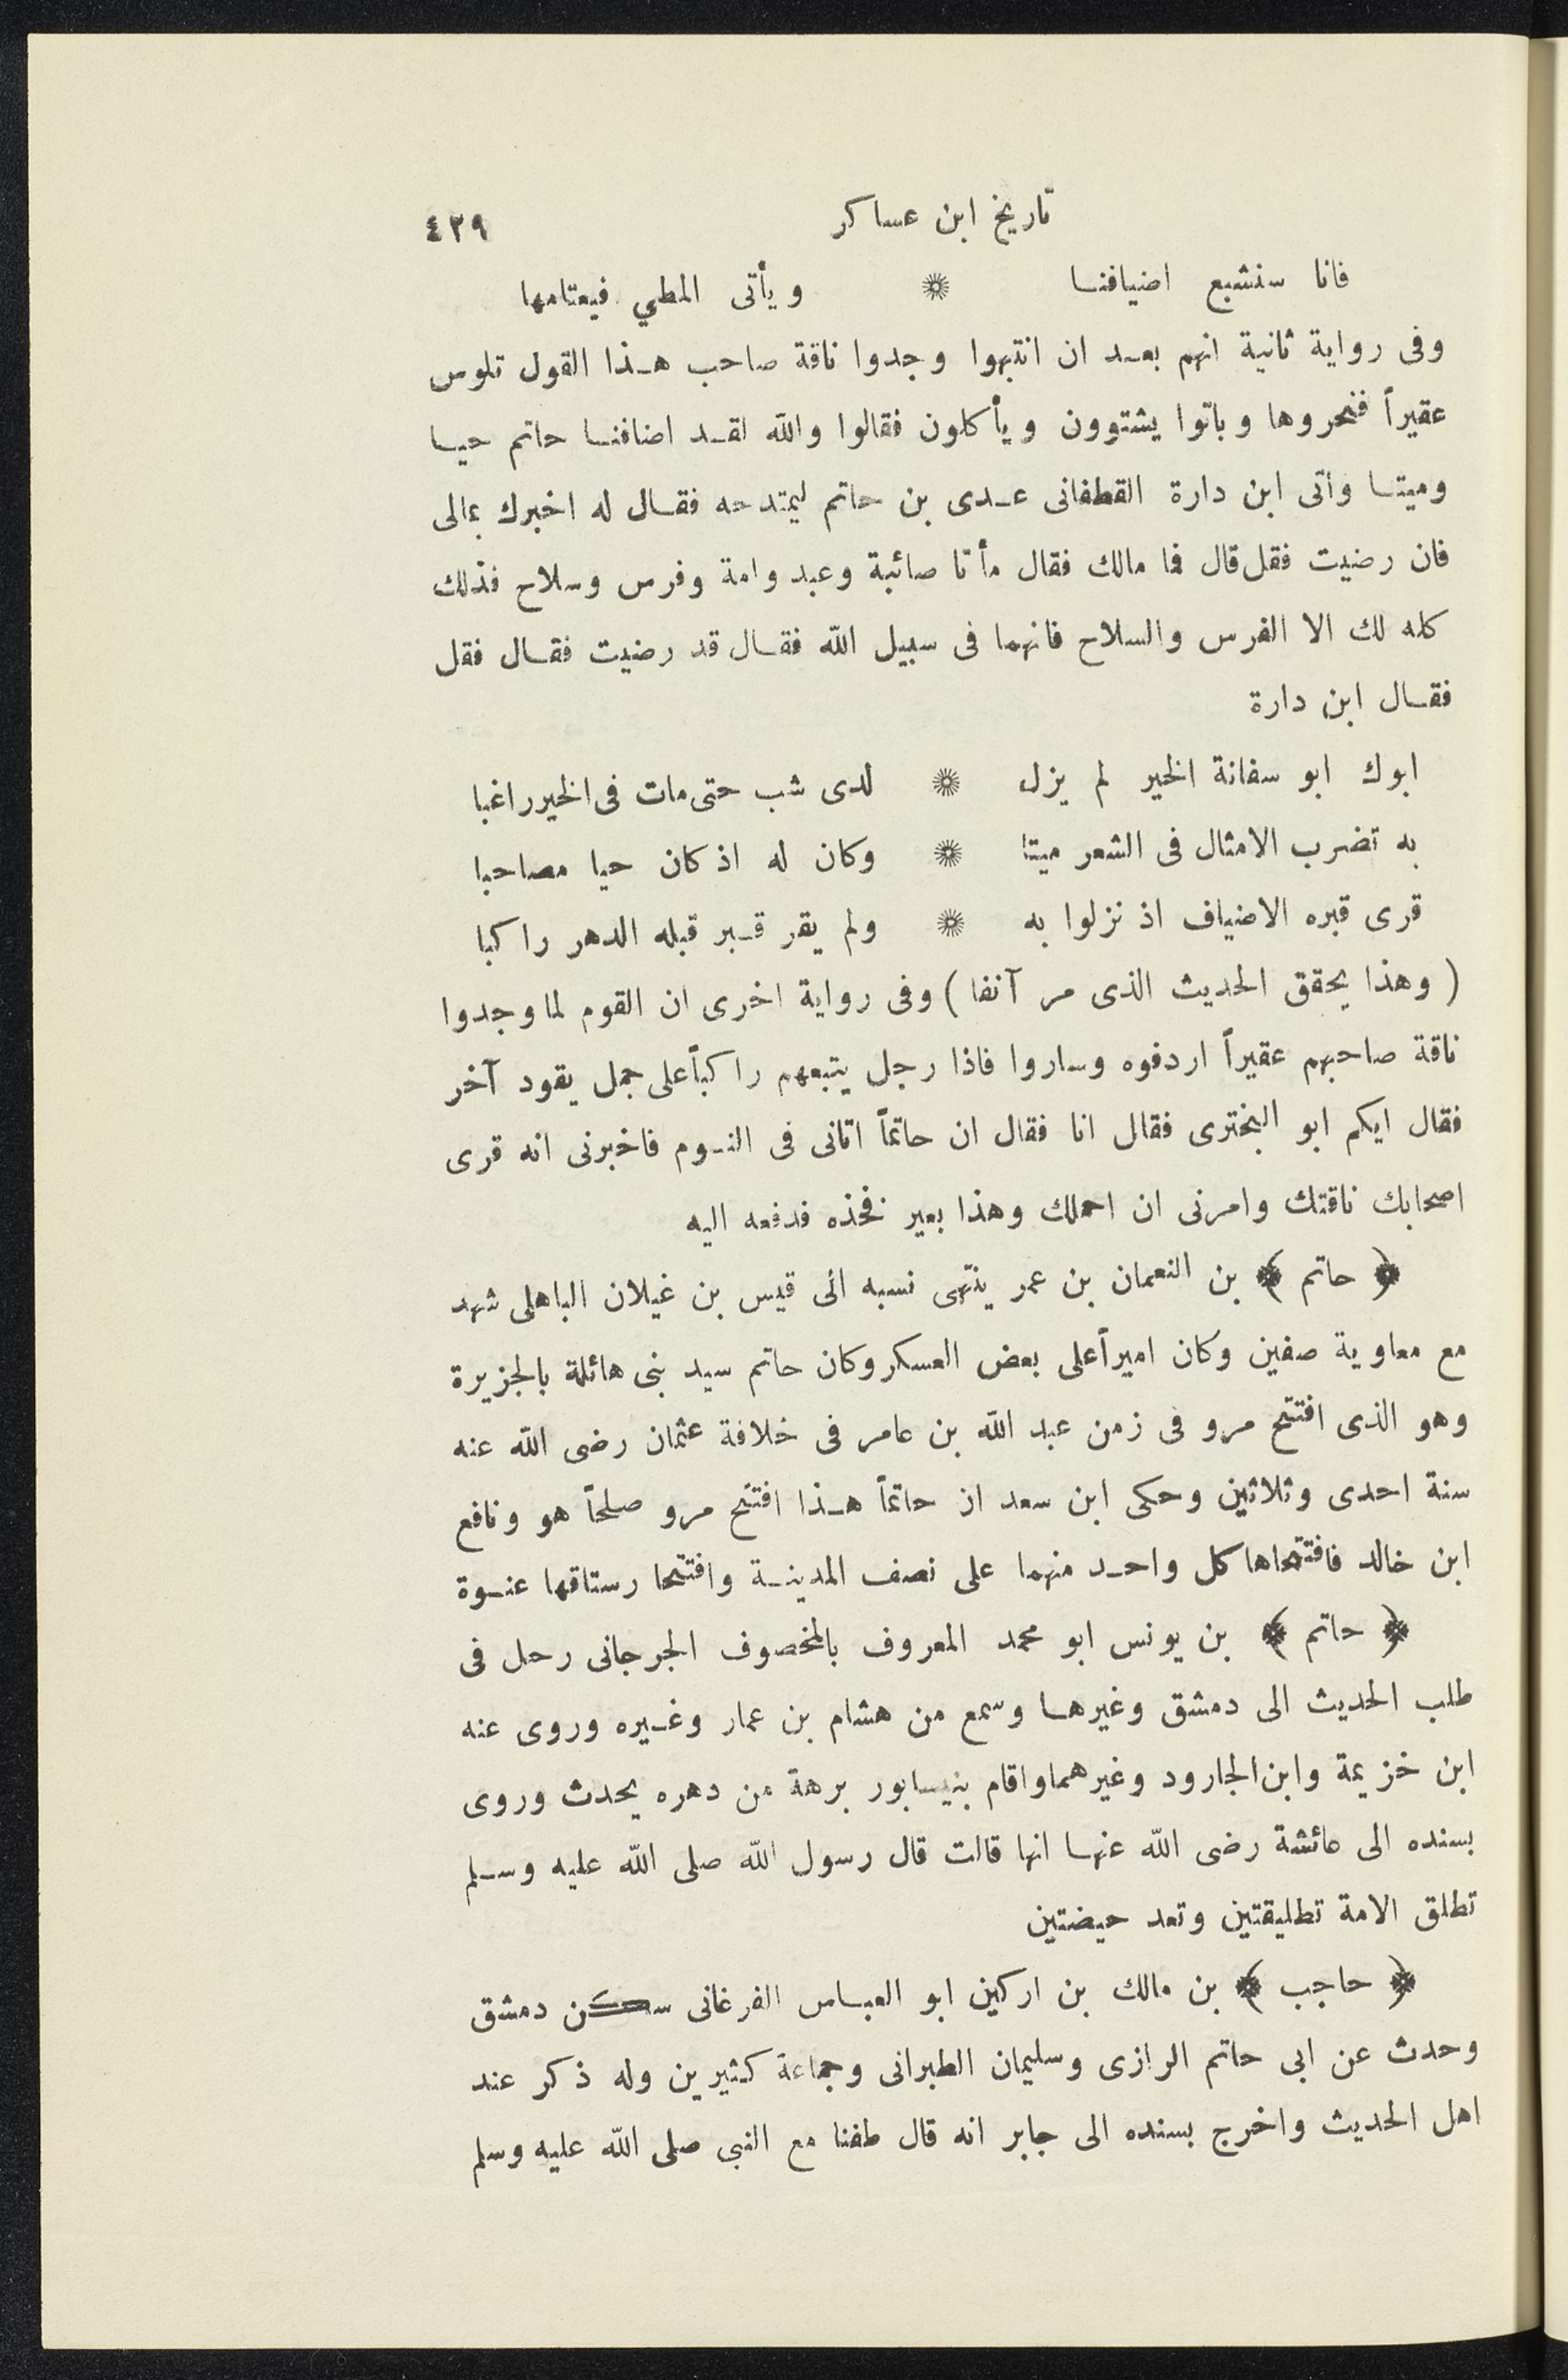 تاريخ ابن عساكر ٤٢٩
فانا سنشبع اضيافنا ۞ ويأتى المطي فيعتامها
وفى رواية ثانية انهم بعد ان انتبهوا وجدوا ناقة صاحب هذا القول تلوس
عقيراً فنحروها وباتوا يشتوون ويأكلون فقالوا والله لقد اضافنا حاتم حيا
وميتا وأتى ابن دارة القطفانى عدى بن حاتم ليمتدحه فقال له اخبرك بمالى
فان رضيت فقل قال فما مالك فقال مأتا صائبة وعبد وامة وفرس وسلاح فذلك
كله لك الا الفرس والسلاح فانهما فى سبيل الله فقال قد رضيت فقال فقل
فقال ابن دارة
ابوك ابو سفانة الخير لم يزل ۞ لدى شب حتى مات فى الخير راغبا
به تضرب الامثال فى الشعر ميتا ۞ وكان له اذ كان حيا مصاحبا
قرى قبره الاضياف اذ نزلوا به ۞ ولم يقر قبر قبله الدهر راكبا
( وهذا يحقق الحديث الذى مر آنفا ) وفى رواية اخرى ان القوم لما وجدوا
ناقة صاحبهم عقيراً اردفوه وساروا فاذا رجل يتبعهم راكباً على جمل يقود آخر
فقال ايكم ابو البخترى فقال انا فقال ان حاتماً اتانى فى النوم فاخبرنى انه قرى
اصحابك ناقتك وامرنى ان احملك وهذا بعير فخذه فدفعه اليه
﴿ حاتم ﴾ بن النعمان بن عمر ينتهى نسبه الى قيس بن غيلان الباهلى شهد
مع معاوية صفين وكان اميراً على بعض العسكر وكان حاتم سيد بنى هائلة بالجزيرة
وهو الذى افتتح مرو فى زمن عبد الله بن عامر فى خلافة عثمان رضى الله عنه
سنة احدى وثلاثين وحكى ابن سعد ان حاتماً هذا افتتح مرو صلحاً هو ونافع
ابن خالد فافتتحاها كل واحد منهما على نصف المدينة وافتتحا رستاقها عنوة
﴿ حاتم ﴾ بن يونس ابو محمد المعروف بالمخصوف الجرجانى رحل فى
طلب الحديث الى دمشق وغيرها وسمع من هشام بن عمار وغيره وروى عنه
ابن خزيمة وابن الجارود وغيرهما واقام بنيسابور برهة من دهره يحدث وروى
بسنده الى عائشة رضى الله عنها انها قالت قال رسول الله صلى الله عليه وسلم
تطلق الامة تطليقتين وتعد حيضتين
﴿ حاجب ﴾ بن مالك بن اركين ابو العباس الفرغانى سكن دمشق
وحدث عن ابى حاتم الرازى وسليمان الطبرانى وجماعة كثيرين وله ذكر عند
اهل الحديث واخرج بسنده الى جابر انه قال طفنا مع النبى صلى الله عليه وسلم